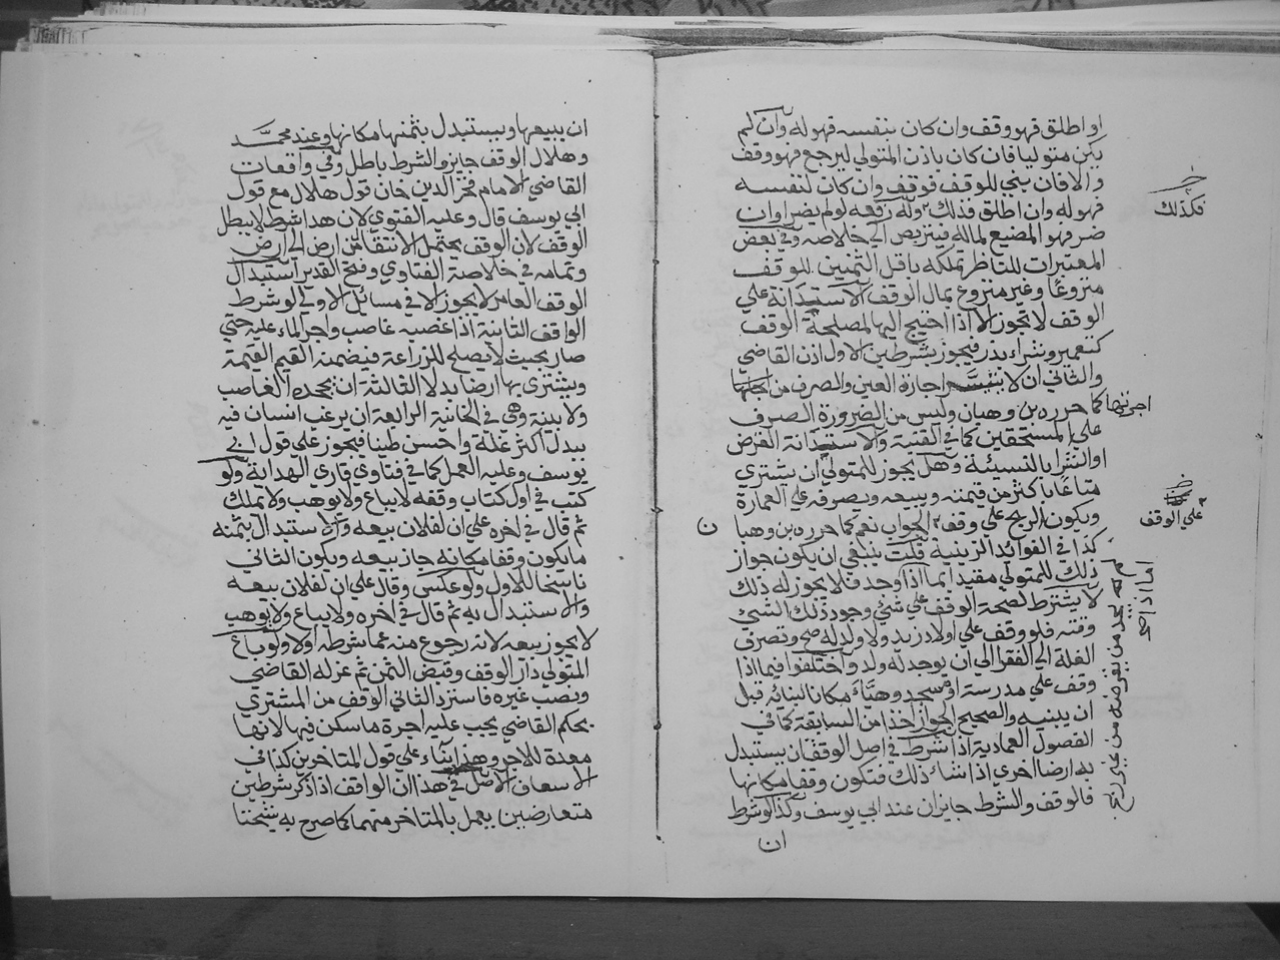 او اطلق فهو وقف وان كان بنفسه فهو له وان لم
يكن متوليا فان كان باذن المتولي ليرجع فهو وقف
والا فان بني للوقف فوقف وان كان لنفسه
فهو له وان اطلق فذلك وله رفعه لو لم يضر وان
ضر فهو المضيع لماله فيتربص الي خلاصه وفي بعض
المعتبرات للناظر تملكه باقل الثمنين للوقف
منزوعا وغير منزوع بمال الوقف الاستدانة علي
الوقف لا تجوز الا اذا احتيج اليها لمصلحة الوقف
كتعمير وشراء بذر فيجوز بشرطين الاول اذن القاضي
والثاني ان لا يتيسر اجارة العين والصرف من اجلها
كما حرره بن وهبان وليس من الضرورة الصرف
علي المستحقين كما في القنية والاستدانة القرض
او الشرا بالنسيئة وهل يجوز للمتولي ان يشتري
متاعا باكثر من قيمته ويبيعه ويصرفه علي العمارة
ويكون الربح علي وقف الجواب نعم كما حرره بن وهبا
كذا في الفوائد الزينية قلت ينبغي ان يكون جواز
ذلك للمتولي مقيدا بما اذا وجد فلا يجوز له ذلك
لا يشترط لصحة الوقف علي شئ وجود ذلك الشئ
وقته فلو وقف علي اولاد زيد ولا ولد له صح وتصرف
الغلة الي الفقرا الي ان يوجد له ولد واختلفوا فيما اذا
وقف علي مدرسة او مسجد وهيأ مكانا لبنائه قبل
ان يبنيه والصحيح الجواز اخذا من السابقة كما في
الفصول العمادية اذا شرط في اصل الوقف ان يستبدل
به ارضا اخري اذا شاء ذلك فتكون وقفا مكانها
فالوقف والشرط جايزان عند ابي يوسف وكذا لو شرط
ان
فكذلك
اجرتها
علي الوقف
ن
اما اذا
يجد من يقرضه من غير ربح
ان يبيعها ويستبدل بثمنها مكانها وعند محمد
وهلال الوقف جايز والشرط باطل وفي واقعات
القاضي الامام فخر الدين خان قول هلال مع قول
ابي يوسف قال وعليه الفتوي لان هذا شرط لا يبطل
الوقف لان الوقف يحتمل الانتقال من ارض الي ارض
وتمامه في خلاصة الفتاوي وفتح القدير استبدال
الوقف العامر لا يجوز الا في مسائل الاولي لو شرط
الواقف الثانية اذا غصبه غاصب واجرا الماء عليه حتي
صار بحيث لا يصلح للزراعة فيضمنه القيم القيمة
ويشتري بها ارضا بدلا الثالثة ان يجحده الغاصب
ولا بينة وهي في الخانية الرابعة ان يرغب انسان فيه
ببدل اكثر غلة واحسن طبنا فيجوز علي قول ابي
يوسف وعليه العمل كما في فتاوي قاري الهداية ولو
كتب في اول كتاب وقفه لا يباع ولا يوهب ولا يملك
ثم قال في اخره علي ان لفلان بيعه والاستبدال بثمنه
ما يكون وقفا مكانه جاز بيعه ويكون الثاني
ناسخا للاول ولو عكس وقال علي ان لفلان بيعه
والاستبدال به ثم قال في اخره ولا يباع ولا يوهب
لا يجوز بيعه لانه رجوع منه عما شرطه اولا ولو باع
المتولي دار الوقف وقبض الثمن ثم عزله القاضي
ونصب غيره فاسترد الثاني الوقف من المشتري
بحكم القاضي يجب عليه اجرة ما سكن فيها لانها
معدة للاجر وهذا بناء علي قول المتاخرين كذا في
الاسعاف الاصل في هذا ان الواقف اذا ذكر شرطين
متعارضين يعمل بالمتاخر منهما كما صرح به شيخنا